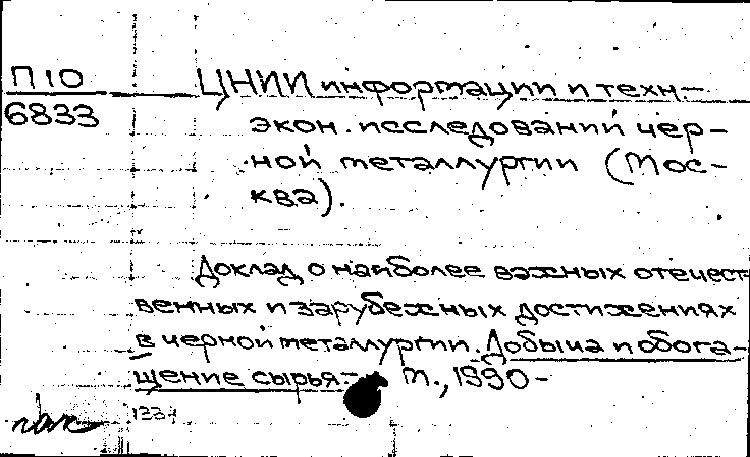 П10
6833
ЦНИИ информации и техн-
экон. исследований чер-
ной металлургии (Мос-
ква).
Доклад о наиболее важных отечест-
венных и зарубежных достижениях
в черной металлургии. Добыча и обога-
щение сырья.- М., 1990-